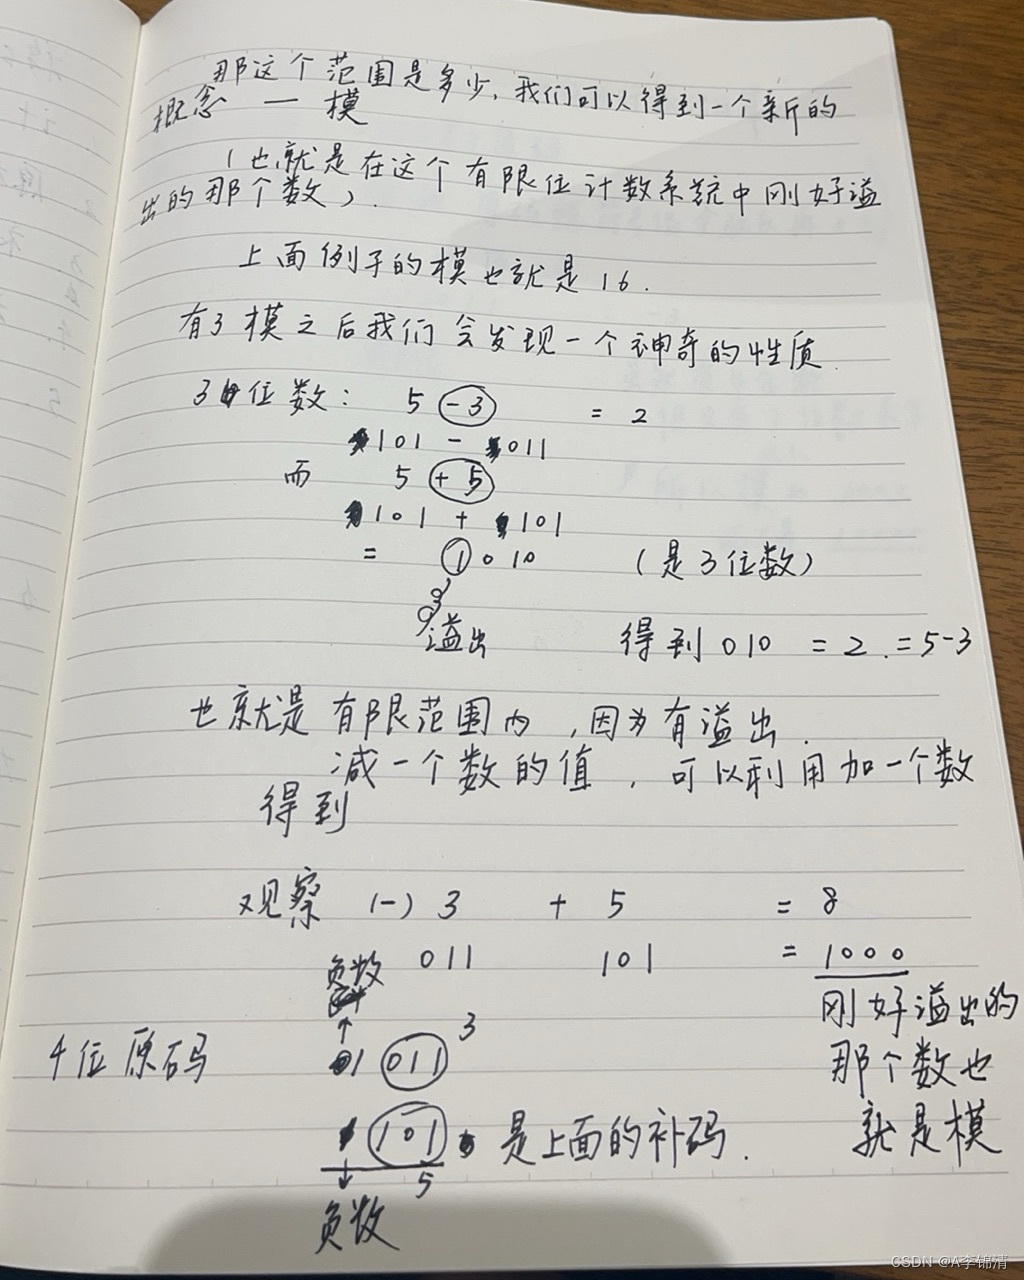 那这个范围是多少,我们可以得到一个新的
概念 — 模
(也就是在这个有限位计数系统中刚好溢
出的那个数).
上面例子的模也就是16.
有了模之后我们会发现一个神奇的性质.
3位数: 5 -3 = 2
101 - 011
而 5 + 5
101 + 101
= 1010 (是3位数)
溢出 得到010 = 2. = 5-3
也就是有限范围内,因为有溢出.
减一个数的值,可以利用加一个数
得到
观察 (-) 3 + 5 = 8
011 101 = 1000
负数
刚好溢出的
那个数也
就是模
3
4位原码 1 011
1 101 是上面的补码.
5
负数
CSDN @A李锦清